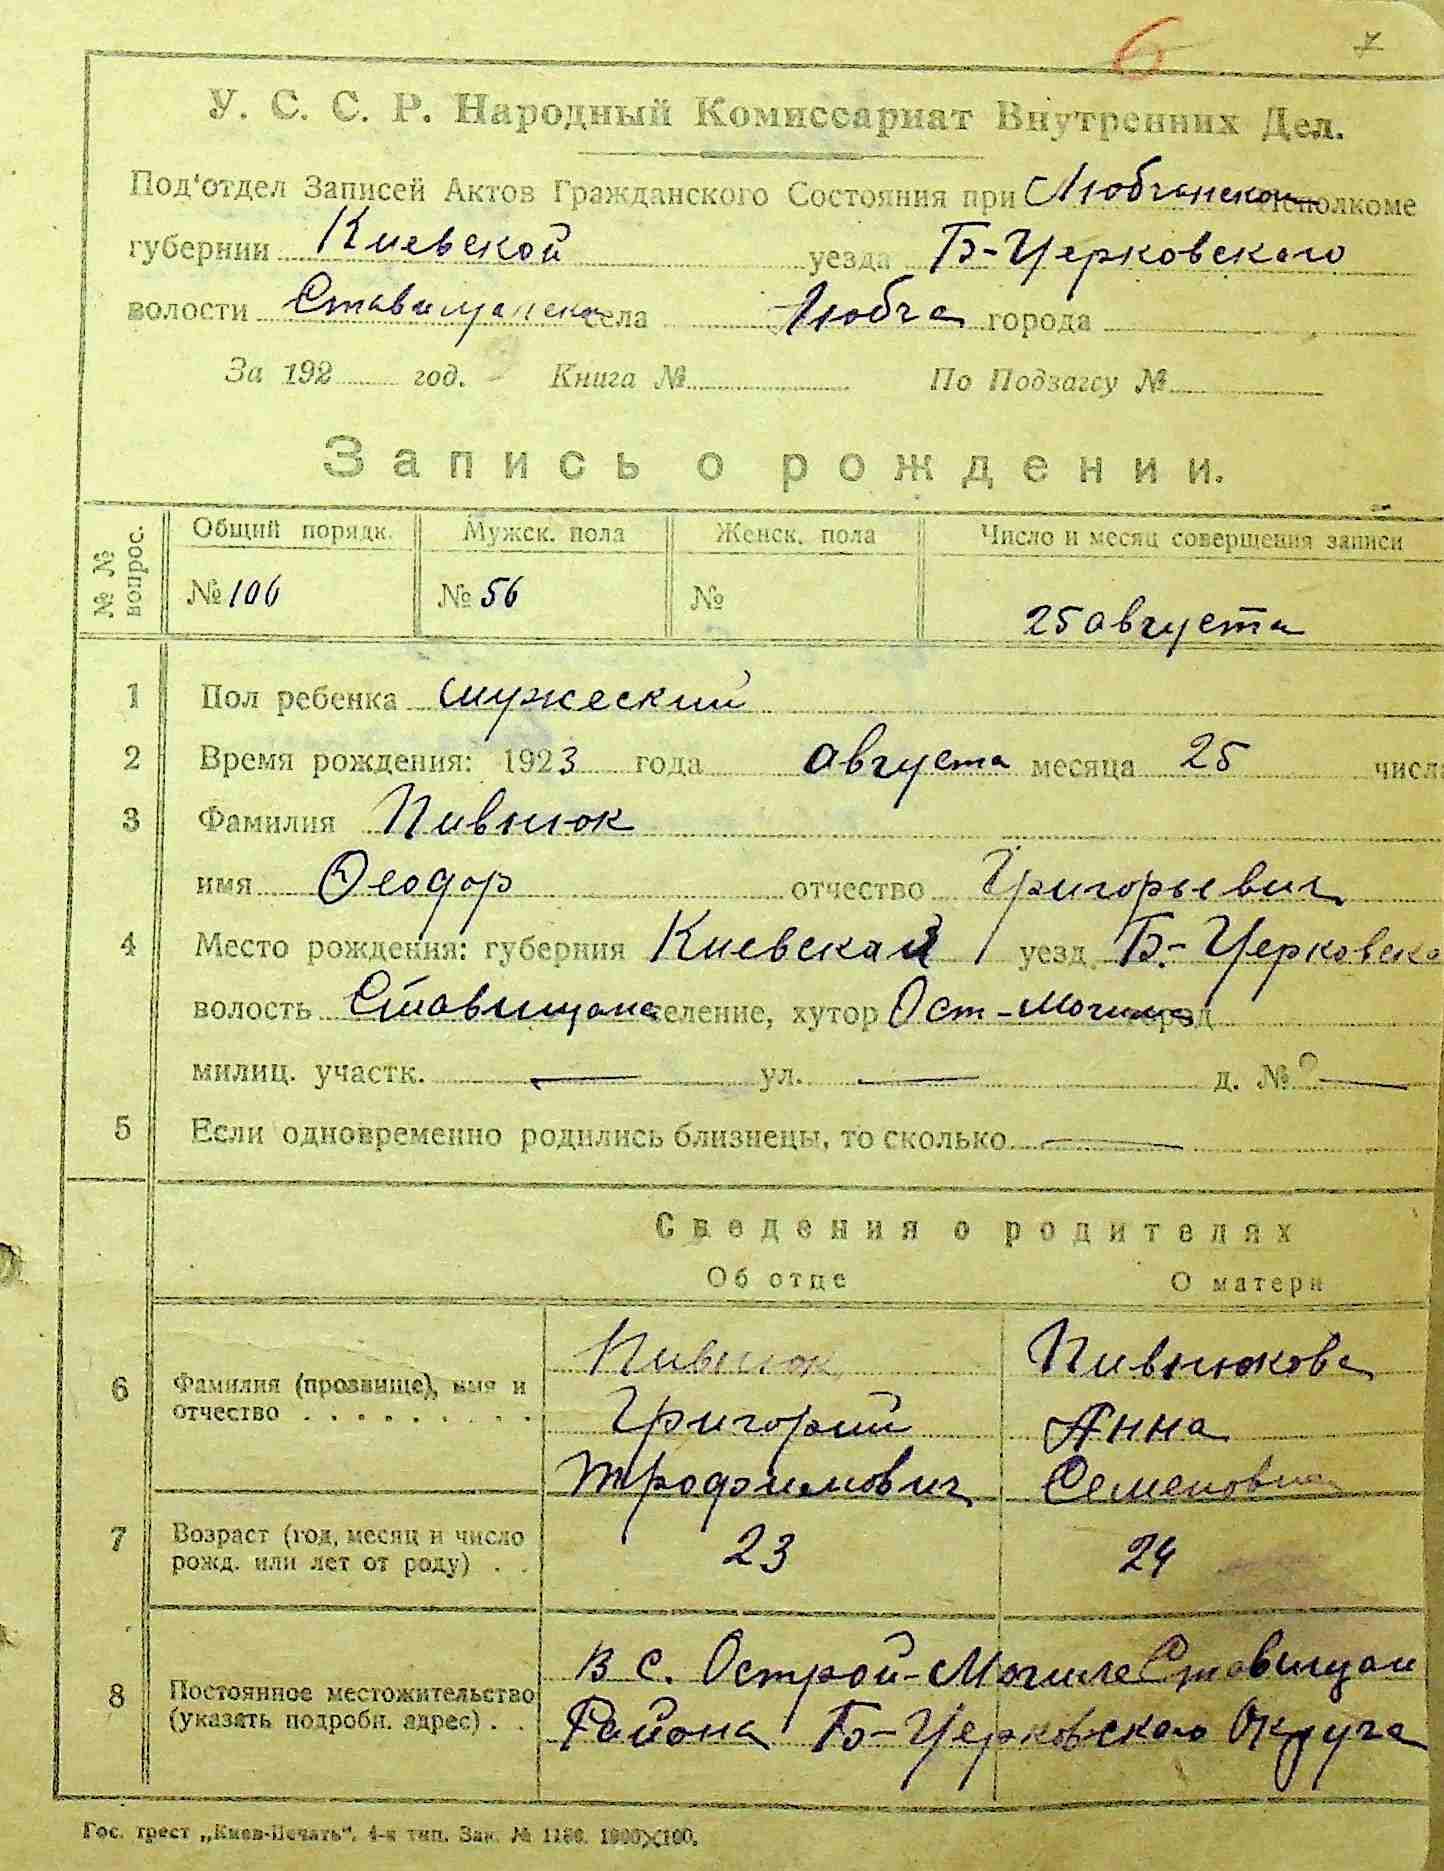 6 7
У. С. С. Р. Народный Комиссариат Внутренних Дел.
Под'отдел Записей Актов Гражданского Состояния при Любчанском Исполкоме
губернии Киевской уезда Б-Церковского
волости Ставищанской села Любча города
За 192 год. Книга № По Подзагсу №
Запись о рождении.
№ № вопрос.
Общий порядк. Мужск. пола Женск. пола Число и месяц совершения записи
№ 106 № 56 № 25 августа
1 Пол ребенка мужеский
2 Время рождения: 1923 года августа месяца 25 числа
3 Фамилия Пивнюк
имя Феодор отчество Григорьевич
4 Место рождения: губерния Киевская уезд Б.-Церковско
волость Ставищанс селение, хутор Ост-Могила город
милиц. участк. — ул. — д. № —
5 Если одновременно родились близнецы, то сколько —
Сведения о родителях
Об отце О матери
Пивнюк Пивнюкова
6 Фамилия (прозвище), имя и Григорий Анна
отчество . . . . . . . . . Трофимович Семеновна
7 Возраст (год, месяц и число 23 24
рожд. или лет от роду) . .
в с. Острой-Могиле Ставищан
8 Постоянное местожительство
(указать подробн. адрес) . . Района Б-Церковского Округа
Гос. трест „Киев-Печать“. 4-я тип. Зак. № 1186. 1000X100.